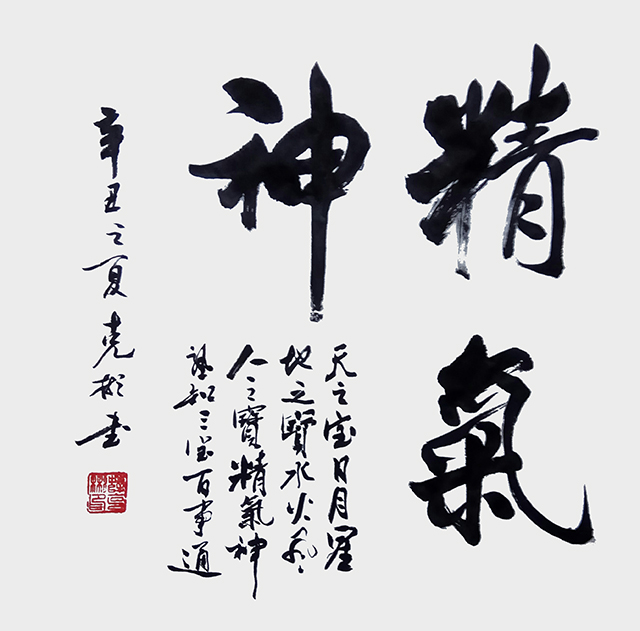 精氣
神
天之宝日月星
地之寶水火風
人之寶精氣神
知三宝百事通
辛丑之夏克彬書